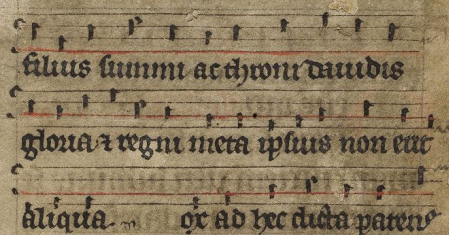 filius summi ac throni dauidis
gloria ⁊ regni meta ipsius non erit
aliqua. ox ad hec dicta patens